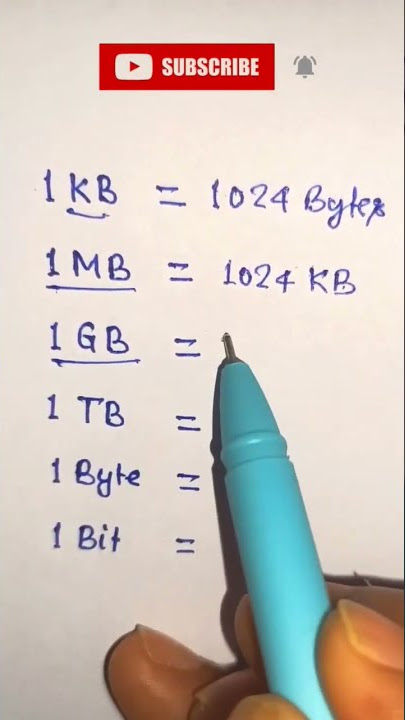 SUBSCRIBE
1 KB = 1024 Bytes
1 MB = 1024 KB
1 GB =
1 TB =
1 Byte =
1 Bit =